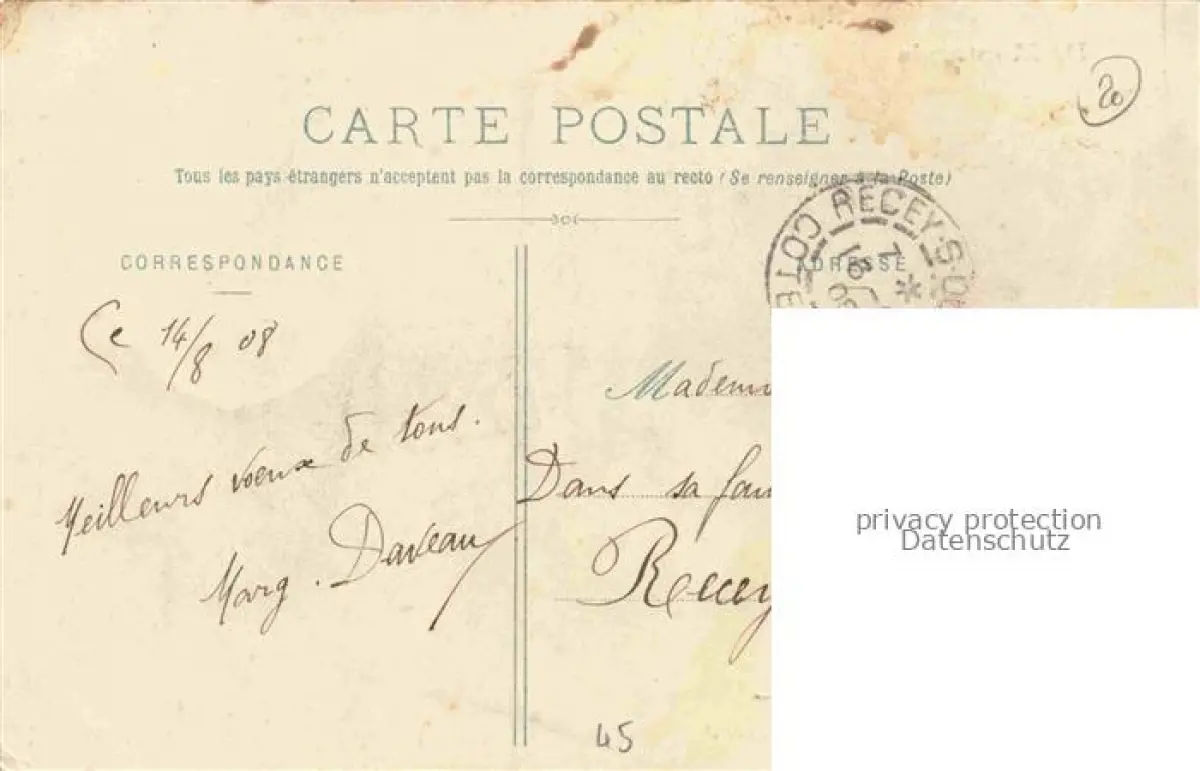 20
CARTE POSTALE
Tous les pays étrangers n'acceptent pas la correspondance au recto (Se renseigner à la Poste)
RECEY-S-O
COTE
CORRESPONDANCE
ADRESSE
Ce 14/8 08
Meilleurs voeux de tous.
Marg. Daveau
Madem
Dans sa fam
Recey
privacy protection
Datenschutz
45